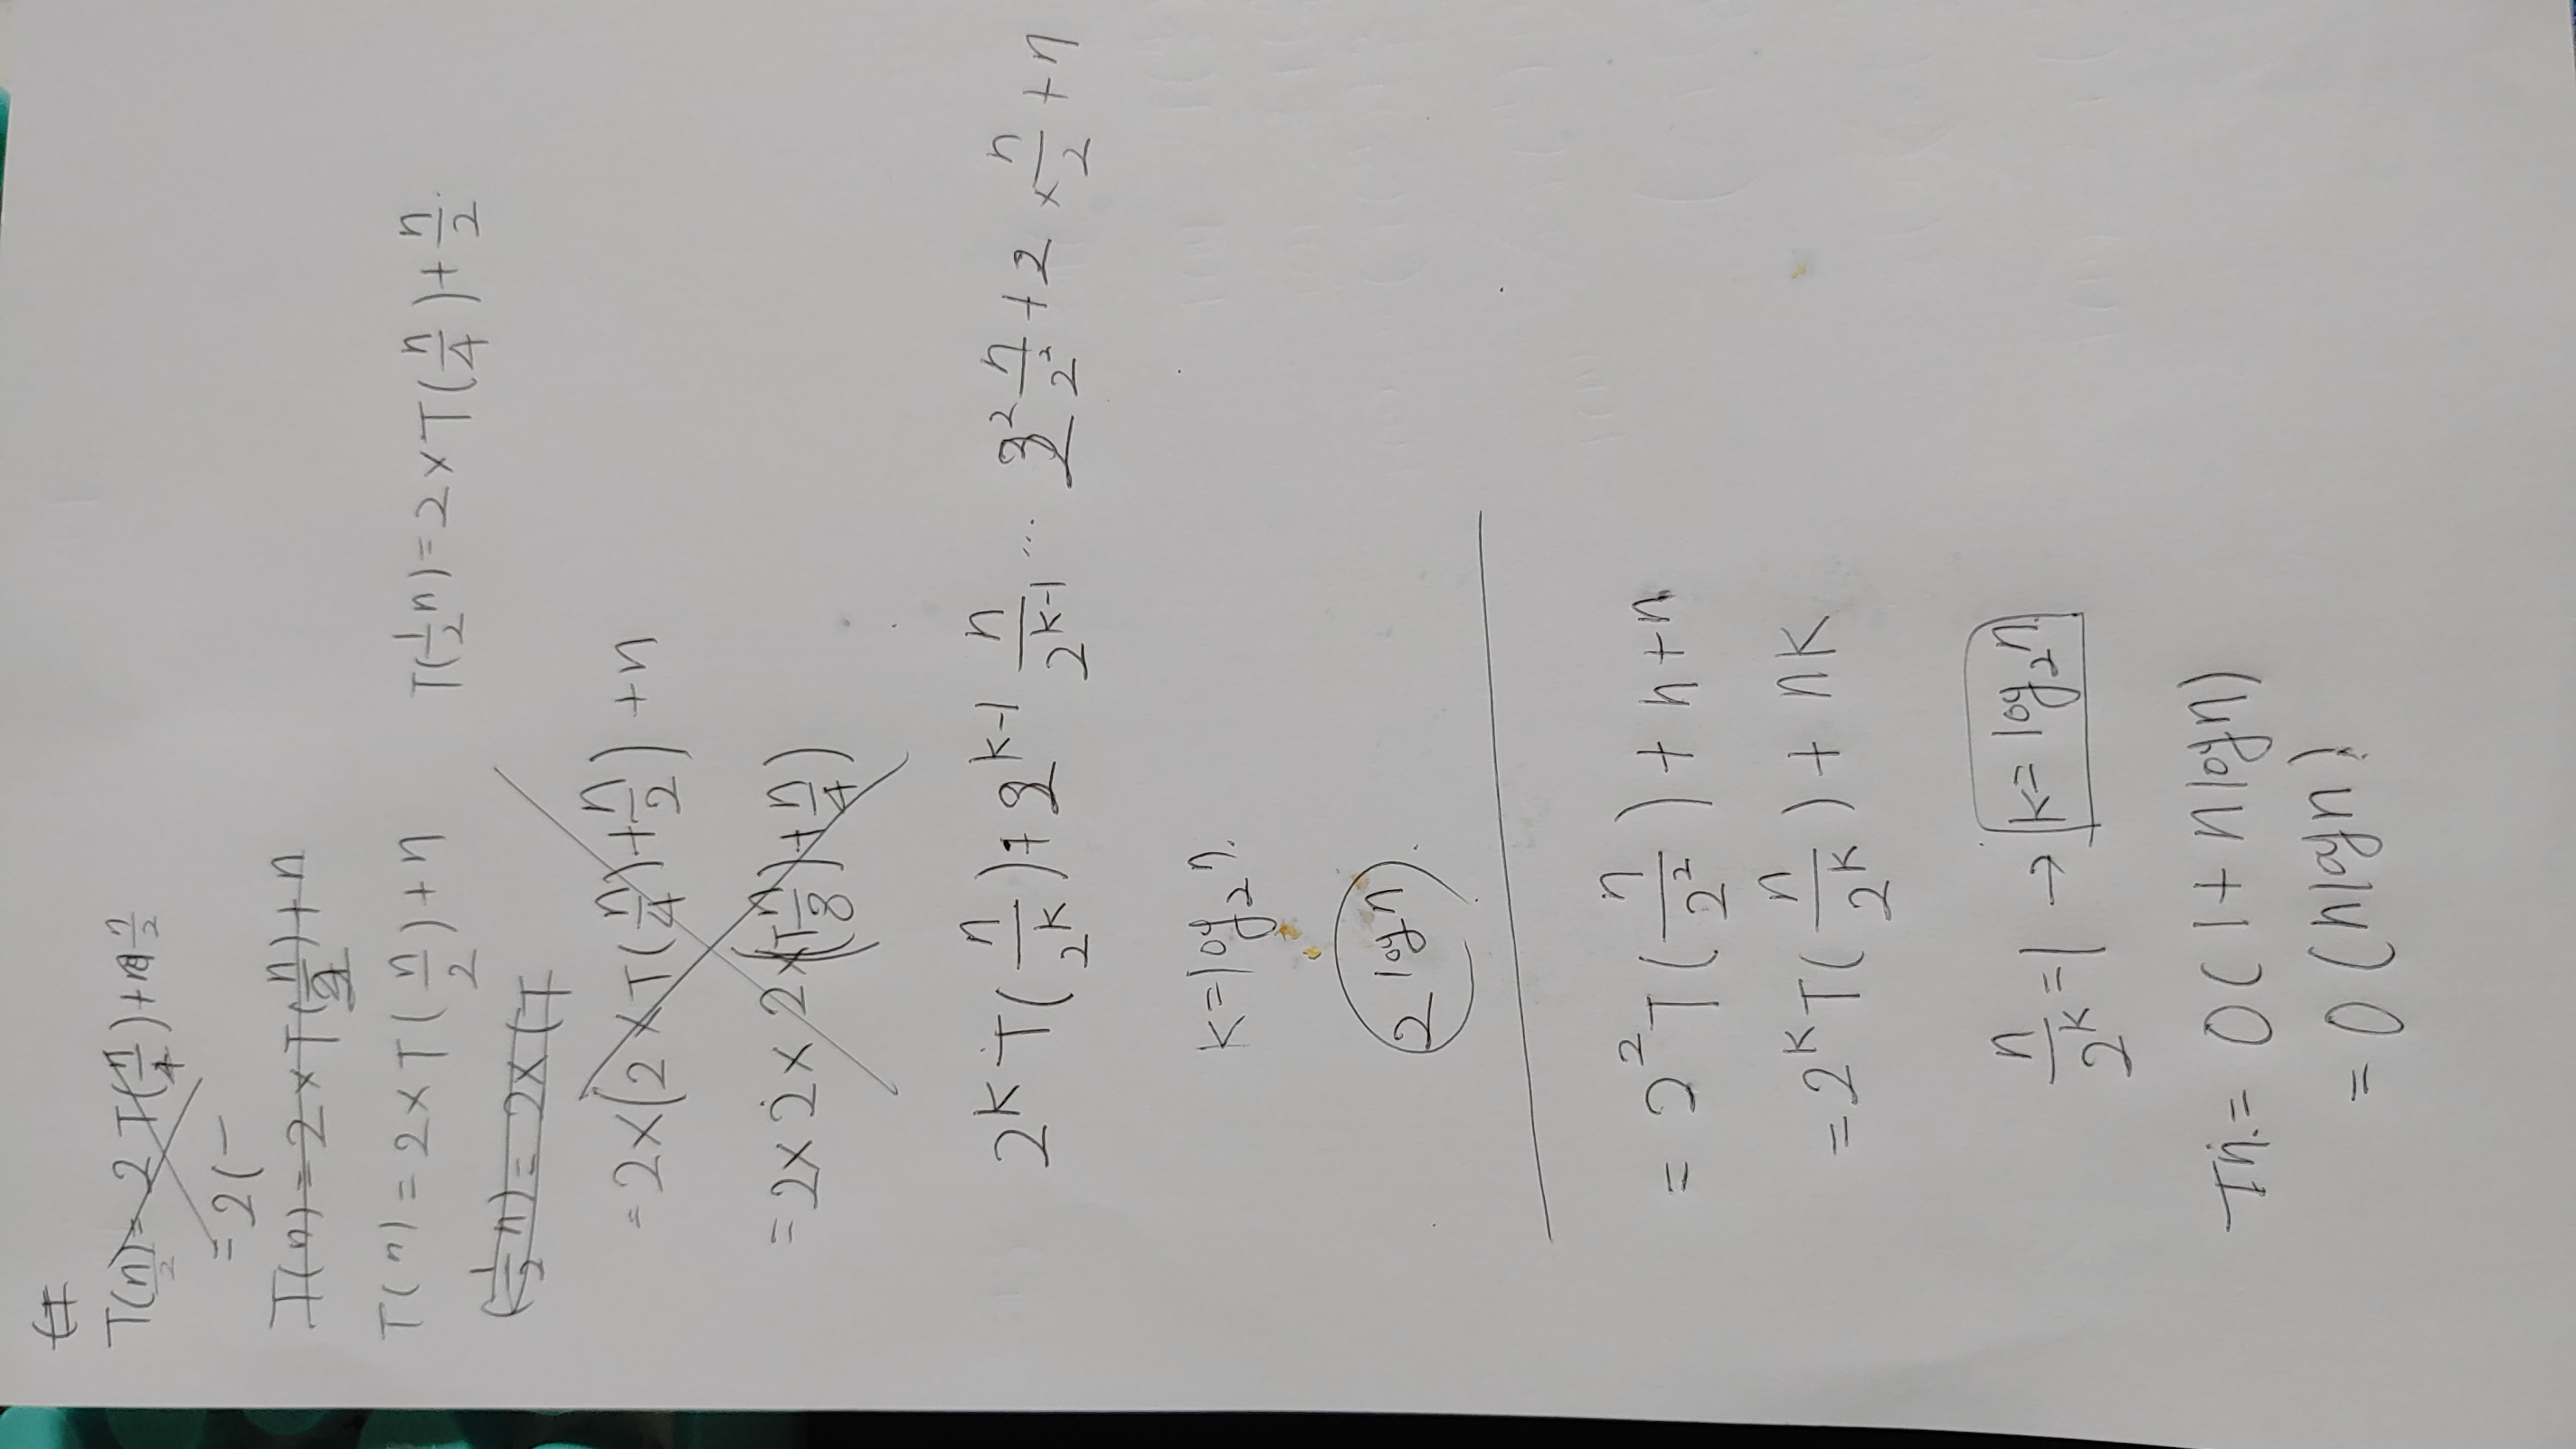 T(n/2) = 2 T(n/4) + n/2
= 2(-
T(n) = 2 × T(n/2) + n
T(n) = 2 × T(n/2) + n
T(1/2 n) = 2 × T(n/4) + n/2
(1/2 n) = 2 × (T
= 2 × (2 × T(n/4) + n/2) + n
= 2 × 2 × 2 × (T n/8) + n/4)
2^k T(n/2^k) + 2^(k-1) n/2^(k-1) ... 2^2 n/2^2 + 2 × n/2 + n
k = log₂ n.
2^(log n).
= 2^2 T(n/2^2) + n + n
= 2^k T(n/2^k) + nk
n/2^k = 1 → k = log₂ n
Tn. = O(1 + n log n)
= O(n log n)